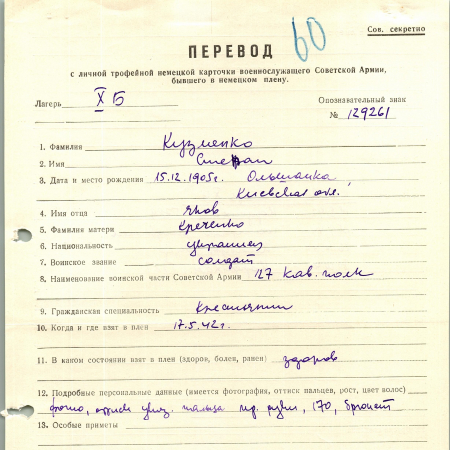 Сов. секретно
60
ПЕРЕВОД
с личной трофейной немецкой карточки военнослужащего Советской Армии,
бывшего в немецком плену.
Лагерь X Б
Опознавательный знак
№ 129261
1. Фамилия Кузменко
2. Имя Степан
3. Дата и место рождения 15.12.1905г. Ольшанка,
Киевская обл.
4. Имя отца Яков
5. Фамилия матери Креченко
6. Национальность украинец
7. Воинское звание солдат
8. Наименование воинской части Советской Армии 127 кав. полк
9. Гражданская специальность Крестьянин
10. Когда и где взят в плен 17.5.42г.
11. В каком состоянии взят в плен (здоров, болен, ранен) здоров
12. Подробные персональные данные (имеется фотография, оттиск пальцев, рост, цвет волос)
фото, оттиск указ. пальца пр. руки, 170, брюнет
13. Особые приметы